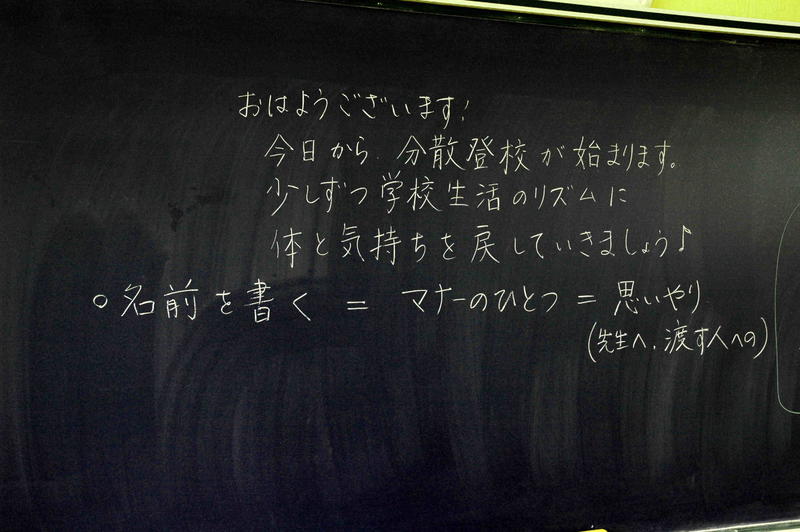 おはようございます!
今日から 分散登校が始まります。
少しずつ学校生活のリズムに
体と気持ちを戻していきましょう♪
○名前を書く = マナーのひとつ = 思いやり
(先生へ、渡す人への)